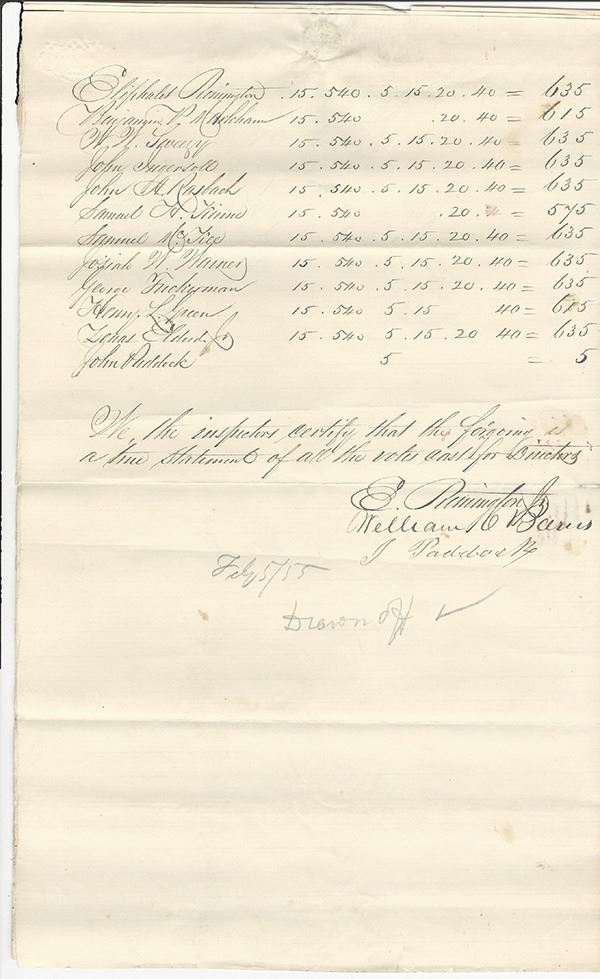 Eliphalet Remington . 15 . 540 . 5 . 15 . 20 . 40 = 635
Benjamin P. Markham 15 . 540 . 20 . 40 = 615
W. W. Sweezy 15 . 540 . 5 . 15 . 20 . 40 = 635
John Ingersoll 15 . 540 . 5 . 15 . 20 . 40 = 635
John A. Rasbach 15 . 540 . 5 . 15 . 20 . 40 = 635
Samuel 15 . 540 . 20 . = 575
Samuel 15 . 540 . 5 . 15 . 20 . 40 = 635
Josiah W. Warner 15 . 540 . 5 . 15 . 20 . 40 = 635
George Tuckerman 15 . 540 . 5 . 15 . 20 . 40 = 635
Henry L. Green 15 . 540 5 . 15 40 = 615
Zenas Eldred Jr 15 . 540 . 5 . 15 . 20 40 = 635
John Paddock 5 = 5
We the inspectors certify that the forgoing is
a true statement of all the votes cast for Directors
E. Remington Jr
William C
J Paddock
Feb 5/55
Drawn off